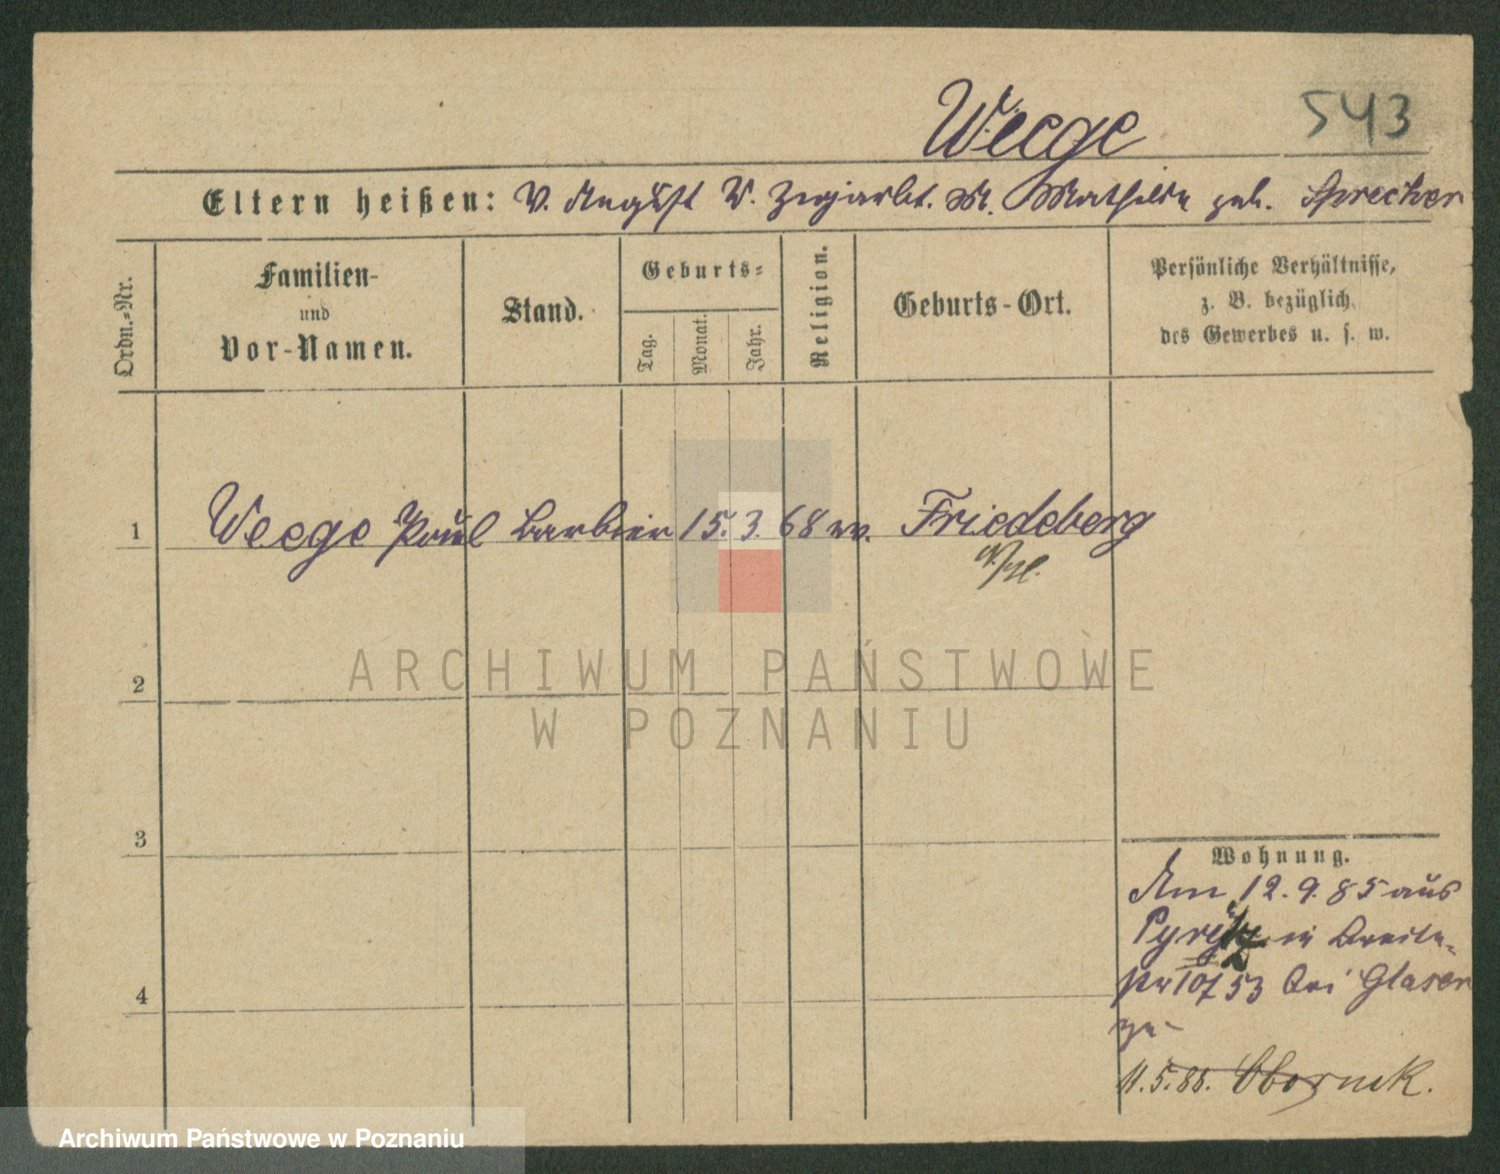 Weege
543
Eltern heißen: V. August W. Zigarrarbt. M. Mathilde geb. Sprecher
Ordn.-Nr.
Familien-
und
Vor-Namen.
Stand.
Geburts-
Tag.
Monat.
Jahr.
Religion.
Geburts-Ort.
Persönliche Verhältnisse,
z. B. bezüglich
des Gewerbes u. s. w.
1 Weege Paul Barbier 15. 3. 68 ev. Friedeberg
2
3
4
Wohnung.
Am 12. 9. 85 aus
in Breite-
53 bei Glaser
zu
11.5.88. Obornik.
ARCHIWUM PAŃSTWOWE
W POZNANIU
Archiwum Państwowe w Poznaniu